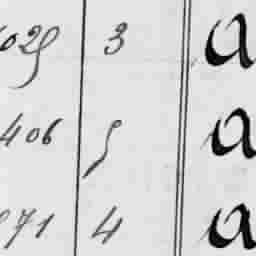 029 3 a
406 9 a
71 4 a